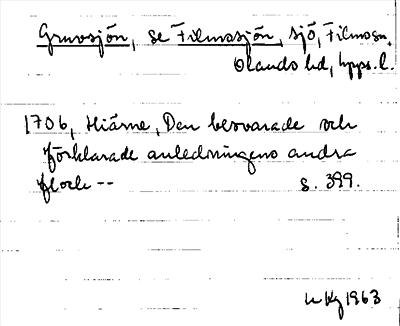 Gruvsjön, se Filmsjön, sjö, Films sn,
Olands hd, Upps. l.
1706, Hiärne, Den besvarade och
förklarade anledningens andra
flock -- s. 399.
1963